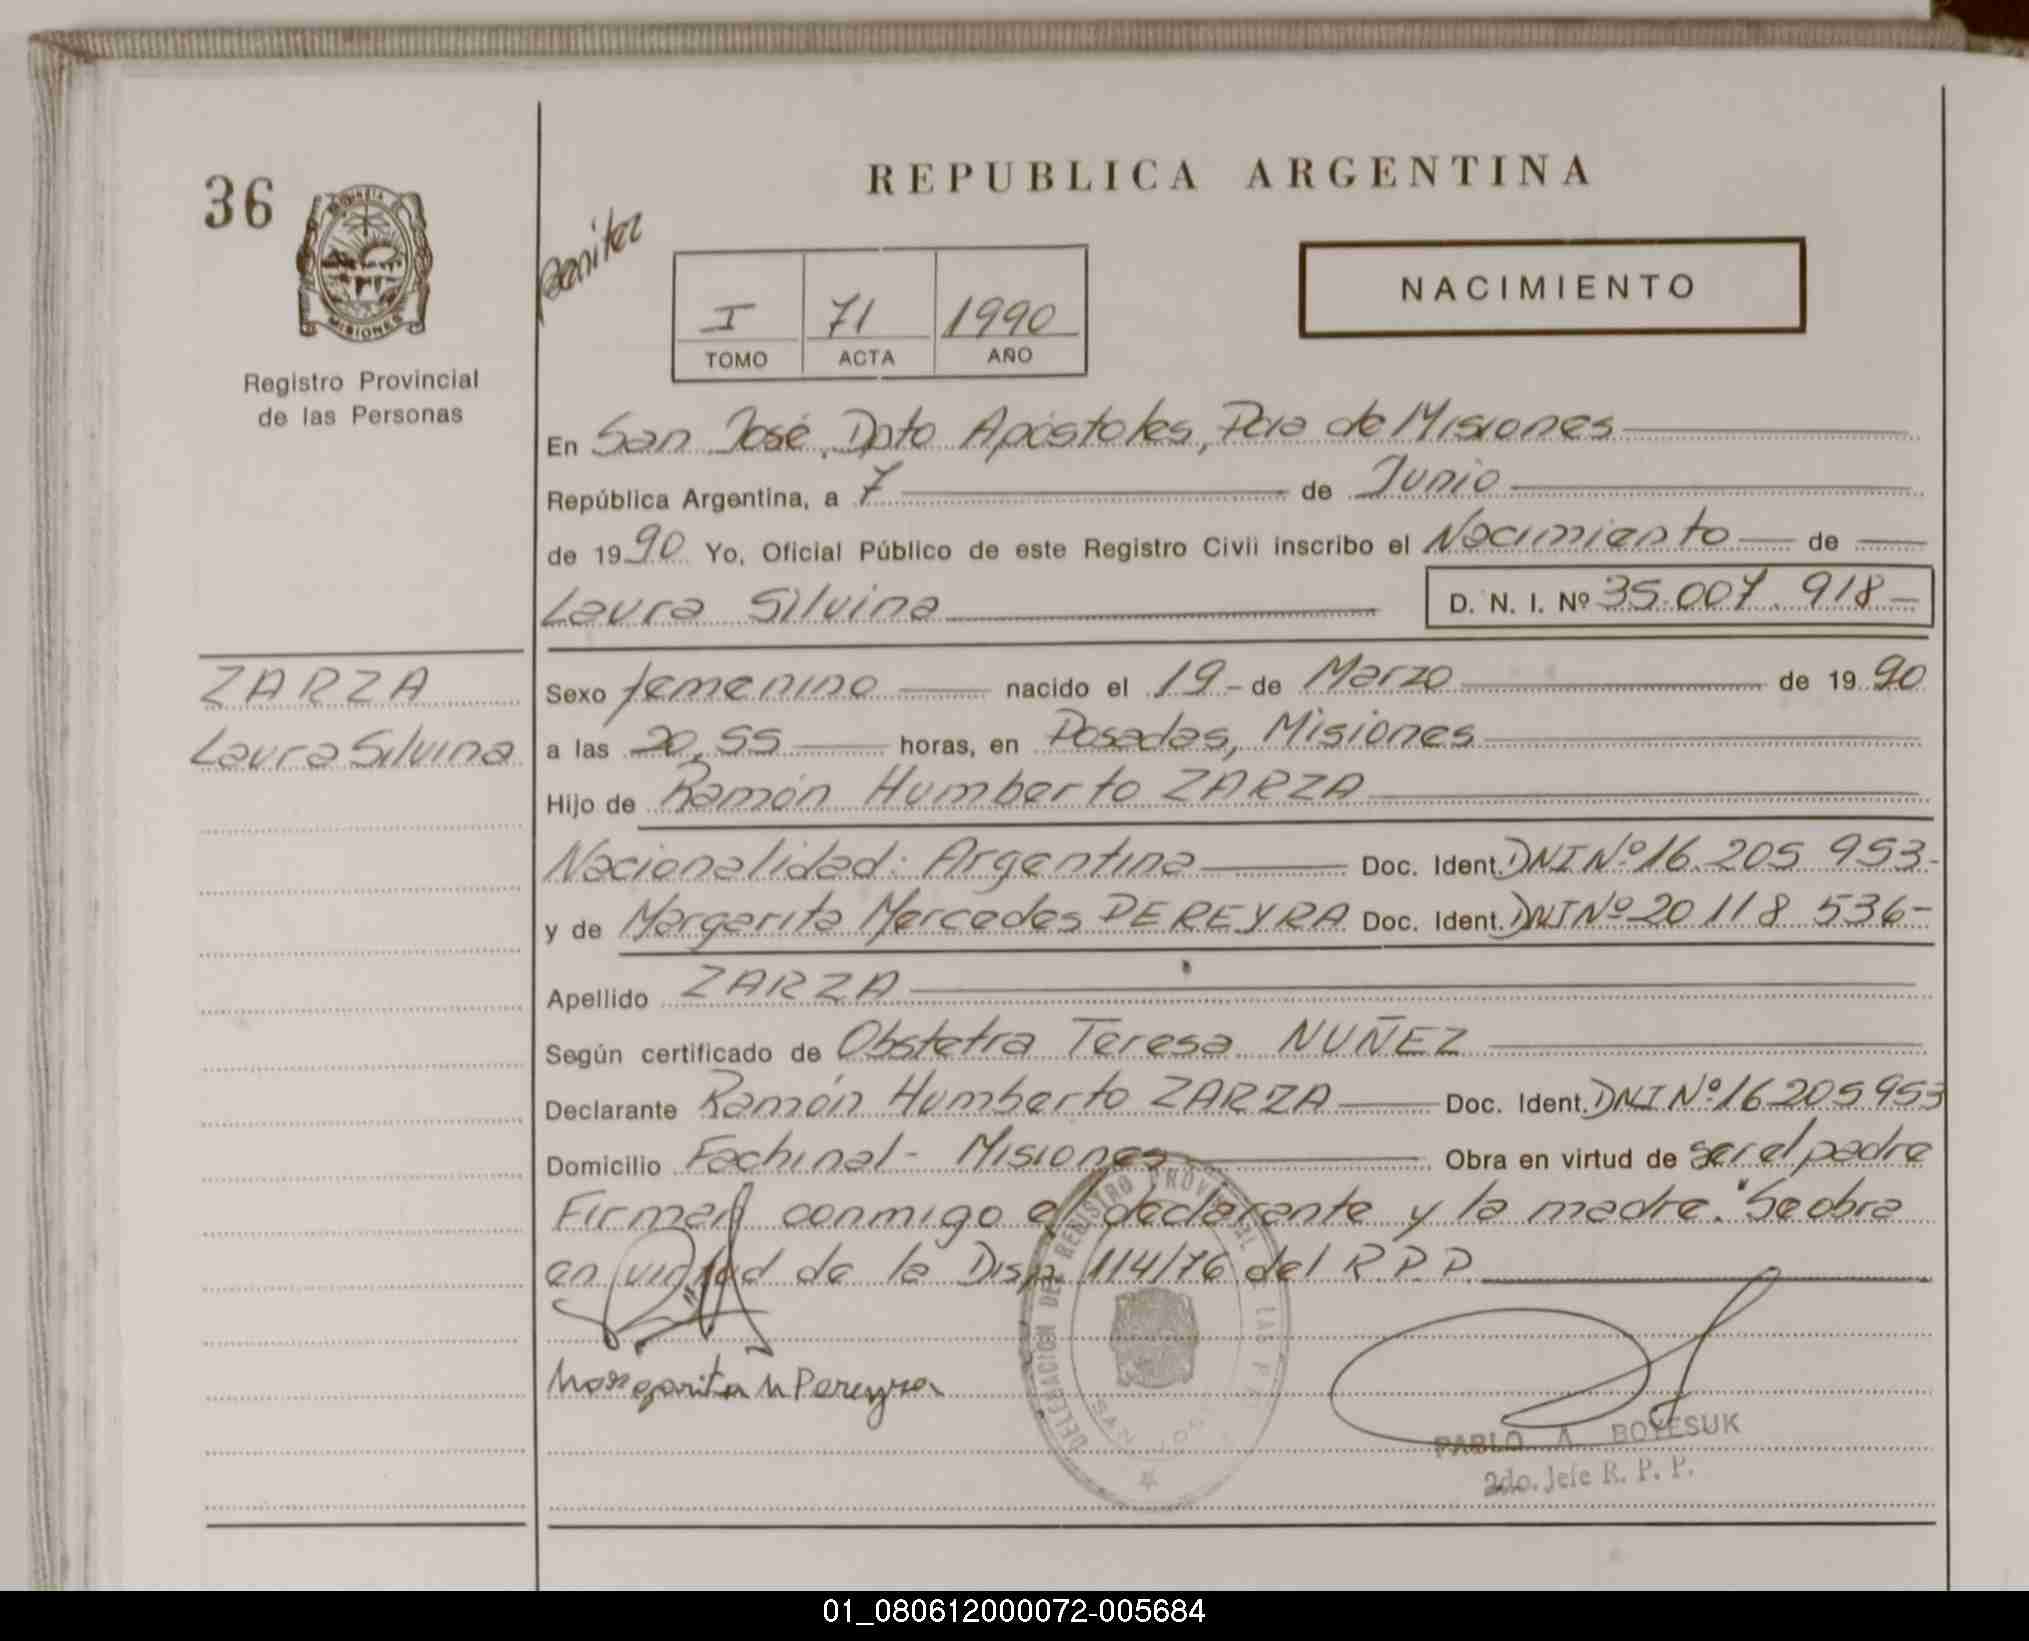 36
PROVINCIA
MISIONES
Registro Provincial
de las Personas
REPUBLICA ARGENTINA
Benitez
I 71 1990
TOMO ACTA AÑO
NACIMIENTO
En San José, Dpto Apóstoles, Pcia de Misiones
República Argentina, a 7 de Junio
de 1990 Yo, Oficial Público de este Registro Civil inscribo el Nacimiento de
Laura Silvina D. N. I. Nº 35.007.918-
ZARZA
Laura Silvina
Sexo femenino nacido el 19 - de Marzo de 1990
a las 20,55 horas, en Posadas, Misiones
Hijo de Ramón Humberto ZARZA
Nacionalidad: Argentina Doc. Ident. DNI Nº 16.205 953-
y de Margarita Mercedes PEREYRA Doc. Ident. DNI Nº 20 118 536-
Apellido ZARZA
Según certificado de Obstetra Teresa NUÑEZ
Declarante Ramón Humberto ZARZA Doc. Ident. DNI Nº 16205953
Domicilio Fachinal - Misiones Obra en virtud de ser el padre
Firman conmigo el declarante y la madre. "Se obra
en virtud de la Disp. 114/76 del R.P.P.
Margarita M Pereyra
DELEGACION DEL REGISTRO PROVINCIAL DE LAS
SAN JOSE
PABLO A BOYESUK
2do. Jefe R. P. P.
01_080612000072-005684